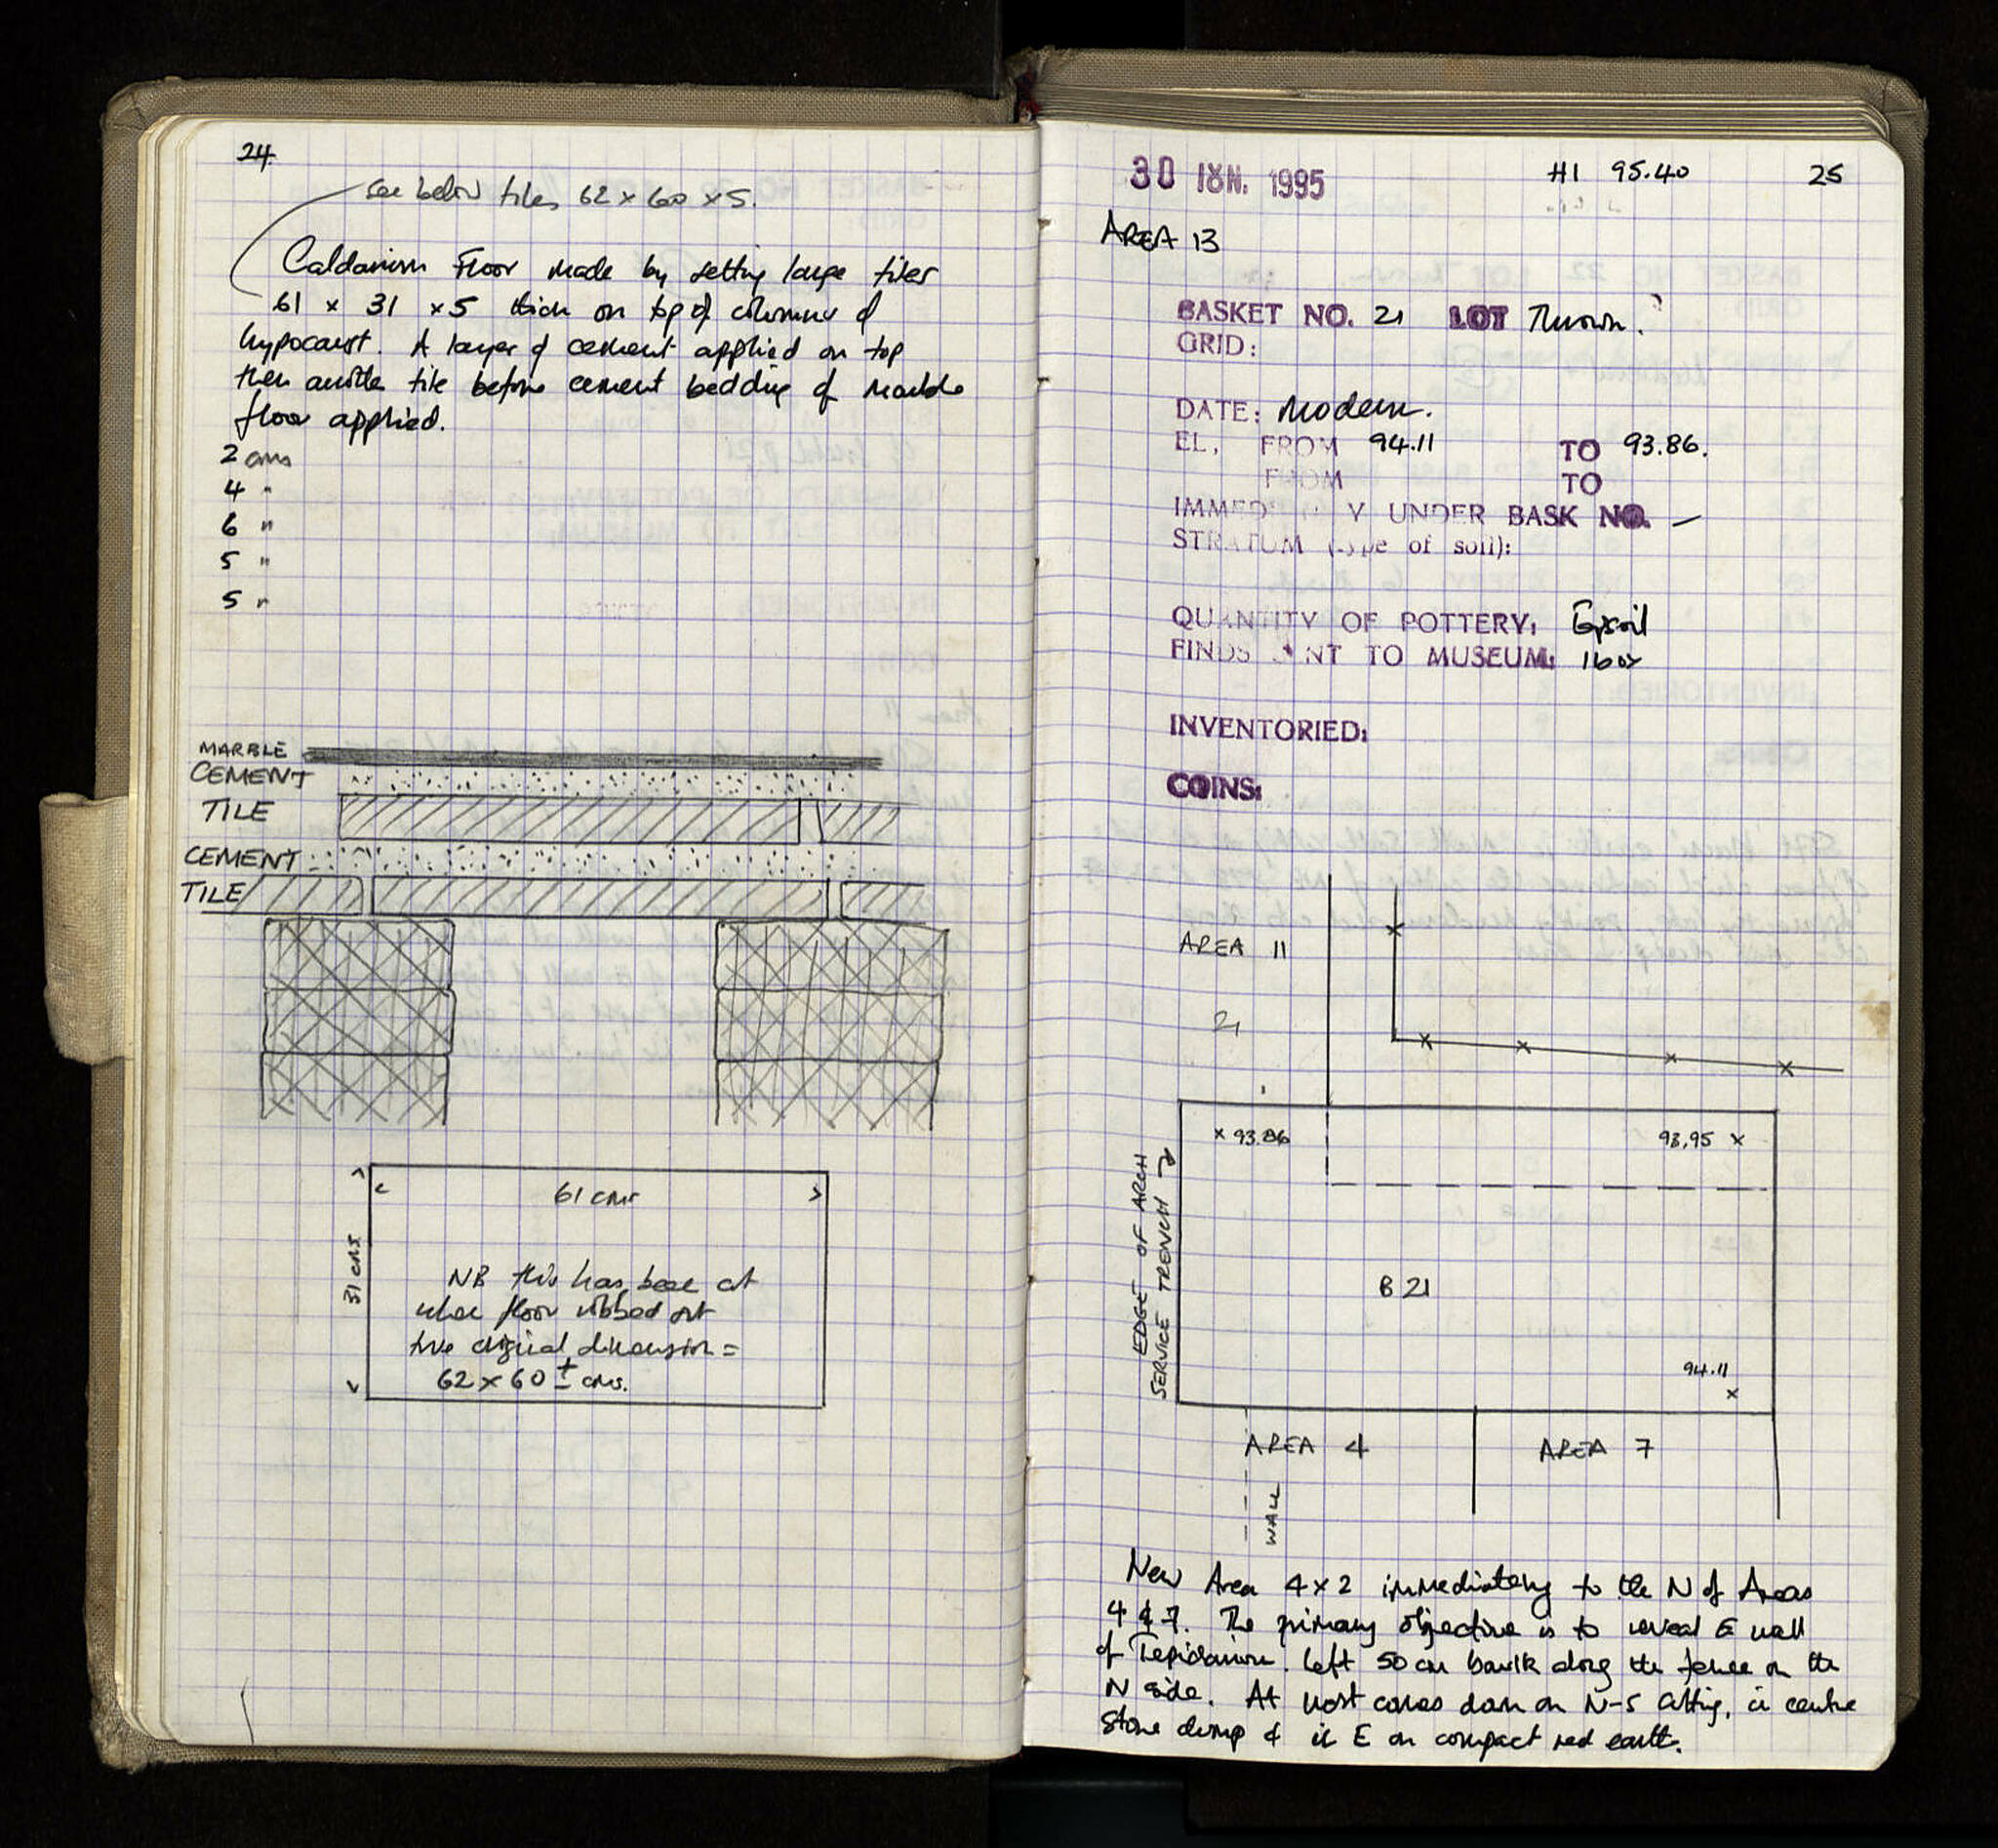 24.
see below tiles 62 x 60 x 5.
Caldarium Floor made by setting large tiles
61 x 31 x 5 thick on top of columns of
hypocaust. A layer of cement applied on top
then another tile before cement bedding of marble
floor applied.
2 cms
4 "
6 "
5 "
5 "
MARBLE
CEMENT
TILE
CEMENT
TILE
61 cms
31 cms
NB this has been cut
when floor robbed out
true original dimension =
62 x 60 ± cms.
30 JUN. 1995
#1 95.40
25
AREA 13
BASKET NO. 21 LOT Thrown.
GRID:
DATE: Modern.
EL, FROM 94.11 TO 93.86.
FROM TO
IMMED Y UNDER BASK NO. —
STRATUM (type of soil):
QUANTITY OF POTTERY: Topsoil
FINDS SENT TO MUSEUM: 1 box
INVENTORIED:
COINS:
AREA 11
21
x 93.86
93.95 x
EDGE OF ARCH
SERVICE TRENCH
B 21
94.11
x
AREA 4
AREA 7
WALL
New Area 4 x 2 immediately to the N of Areas
4 & 7. The primary objective is to reveal E wall
of Tepidarium. Left 50 cm baulk along the fence on the
N side. At west comes down on N-S cutting, in centre
stone dump & in E on compact red earth.